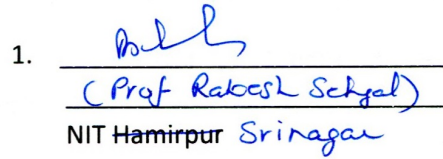 1.
(Prof Rakesh Sehgal)
NIT Hamirpur Srinagar